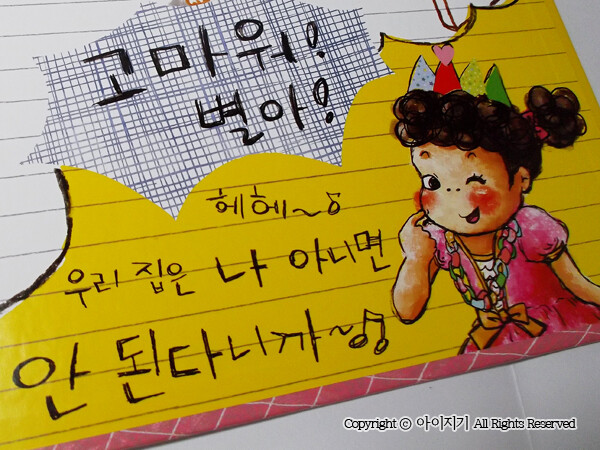 고마워!
별아!
헤헤~♪
우리 집은 나 아니면
안 된다니까~♬
Copyright ⓒ 아이지기 All Rights Reserved